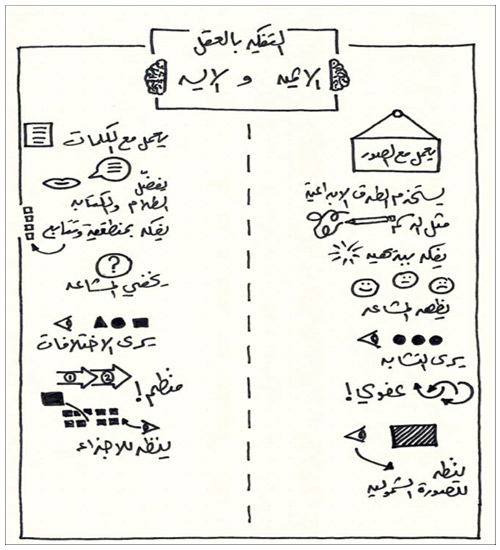 التفكير بالعقل
الايمن و الايسر
يعمل مع الصور
يستخدم الطرق الابداعية
مثل الرسم
يفكر ببديهية
يظهر المشاعر
يرى التشابه
عفوي!
ينظر
للصورة الشمولية
يعمل مع الكلمات
يفضل
الكلام والكتابة
يفكر بمنطقية وتتابع
?
يخفي المشاعر
يرى الاختلافات
1 2
منظم!
ينظر للاجزاء